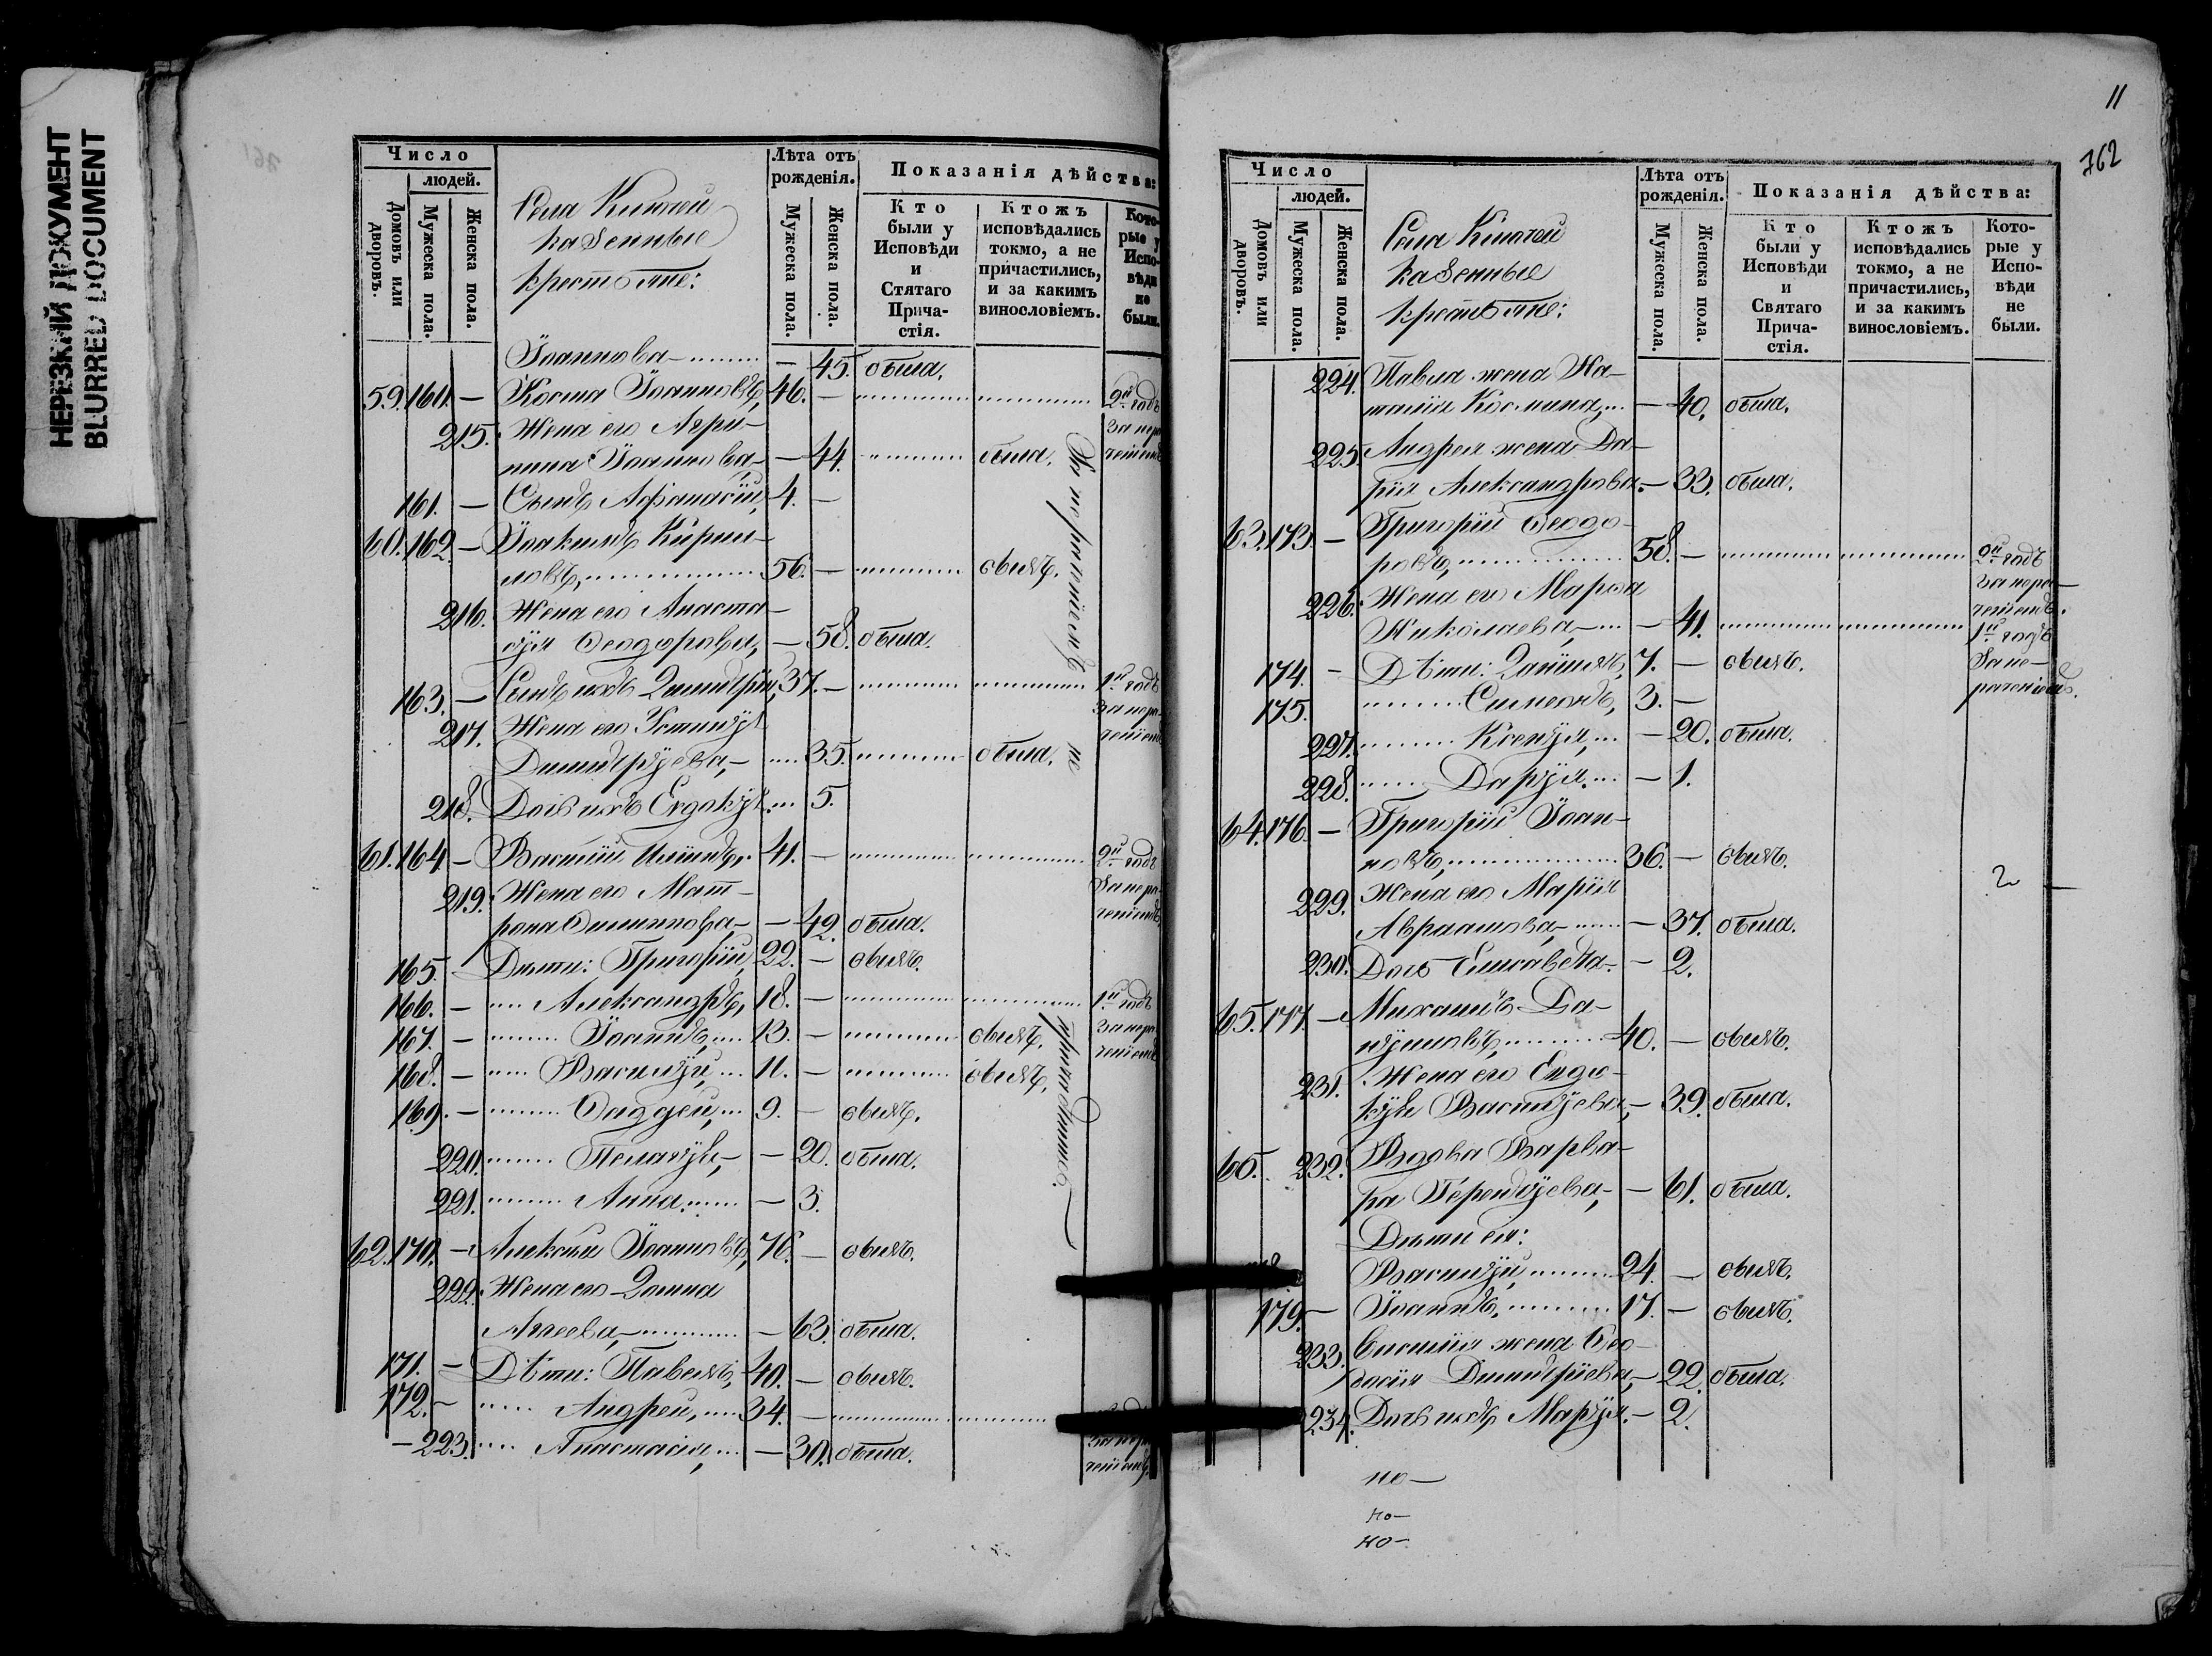 НЕРЕЗКИЙ ДОКУМЕНТ
BLURRED DOCUMENT
Число
людей.
Домовъ или дворовъ.
Мужеска пола.
Женска пола.
Села
казенные
крестьяне:
Лѣта отъ рожденія.
Мужеска пола.
Женска пола.
Показанія дѣйства:
Кто были у Исповѣди и Стятаго Прича-стія.
Ктожъ исповѣдались токмо, а не причастились, и за какимъ винословіемъ.
Кото-рые у Испо-вѣди не были.
Іоаннова — 45. была.
59. 160. — Косма Іоанновъ, 46. — 2й годъ
215. Жена его Агри- за нера-
пина Іоаннова, — 44. была. ченіемъ
161. — Сынъ Афанасій, 4. —
60. 162. — Іоакимъ Кирил-
ловъ, 56. — былъ.
216. Жена его Анаста-
сіа Ѳеодорова, — 58. была.
163. — Сынъ ихъ Димитрій, 37. — 1й годъ
217. Жена его Устинія за нера-
Димитріева, 35. была. ченіемъ
218. Дочь ихъ Евдокія 5.
61. 164. — Василій Иліинъ, 41. — 2й годъ
219. Жена его Мат- за нера-
рона — 42. была. ченіемъ
165. — Дѣти: Григорій, 22. — былъ.
166. — Александръ, 18. — 1й годъ
167. — Іоаннъ, 13. — былъ. за нера-
168. — Василій, 11. — былъ. ченіемъ
169. — Ѳаддей, 9. — былъ.
220. Пелагія, — 20. была.
221. Анна — 3.
62. 170. — Алексій Іоанновъ, 76. — былъ.
222. Жена его Домна
— 63. была.
171. — Дѣти: Павелъ, 40. — былъ.
172. — Андрей, 34. —
— 223. Анастасія, — 30. была. за нера-
ченіемъ
По нераченію не
причастились.
11
762
Число
людей.
Домовъ или дворовъ.
Мужеска пола.
Женска пола.
Села
казенные
крестьяне:
Лѣта отъ рожденія.
Мужеска пола.
Женска пола.
Показанія дѣйства:
Кто были у Исповѣди и Святаго Прича-стія.
Ктожъ исповѣдались токмо, а не причастились, и за какимъ винословіемъ.
Кото-рые у Испо-вѣди не были.
224. Павла жена На-
талія Космина, — 40. была.
225. Андрея жена Да-
рія Александрова — 33. была.
63. 173. — Григорій Ѳеодо-
ровъ, 58. — 2й годъ
226. Жена его Марѳа за нера-
ченіемъ.
Николаева, — 41. 1й годъ
174. — Дѣти: Даніилъ, 7. — былъ. за не-
175. Симеонъ, 3. — раченіемъ.
227. Ксенія, — 20. была.
228. Дарія — 1.
64. 176. — Григорій Іоан-
новъ, 36. — былъ.
229. Жена его Марія 2
Авраамова, — 37. была.
230. Дочь Елисавета — 2.
65. 177. — Михаилъ Да-
ніиловъ, 40. — былъ.
231. Жена его Евдо-
кія Василіева, — 39. была.
66. 232. Вдова Варва-
ра Терентіева, — 61. была.
Дѣти ея:
Василій, 24. — былъ.
179. — Іоаннъ, 17. — былъ.
233. Василія жена Ѳео-
досія Димитріева, — 22. была.
234. Дочь ихъ Марія — 2.
но —
но —
но —